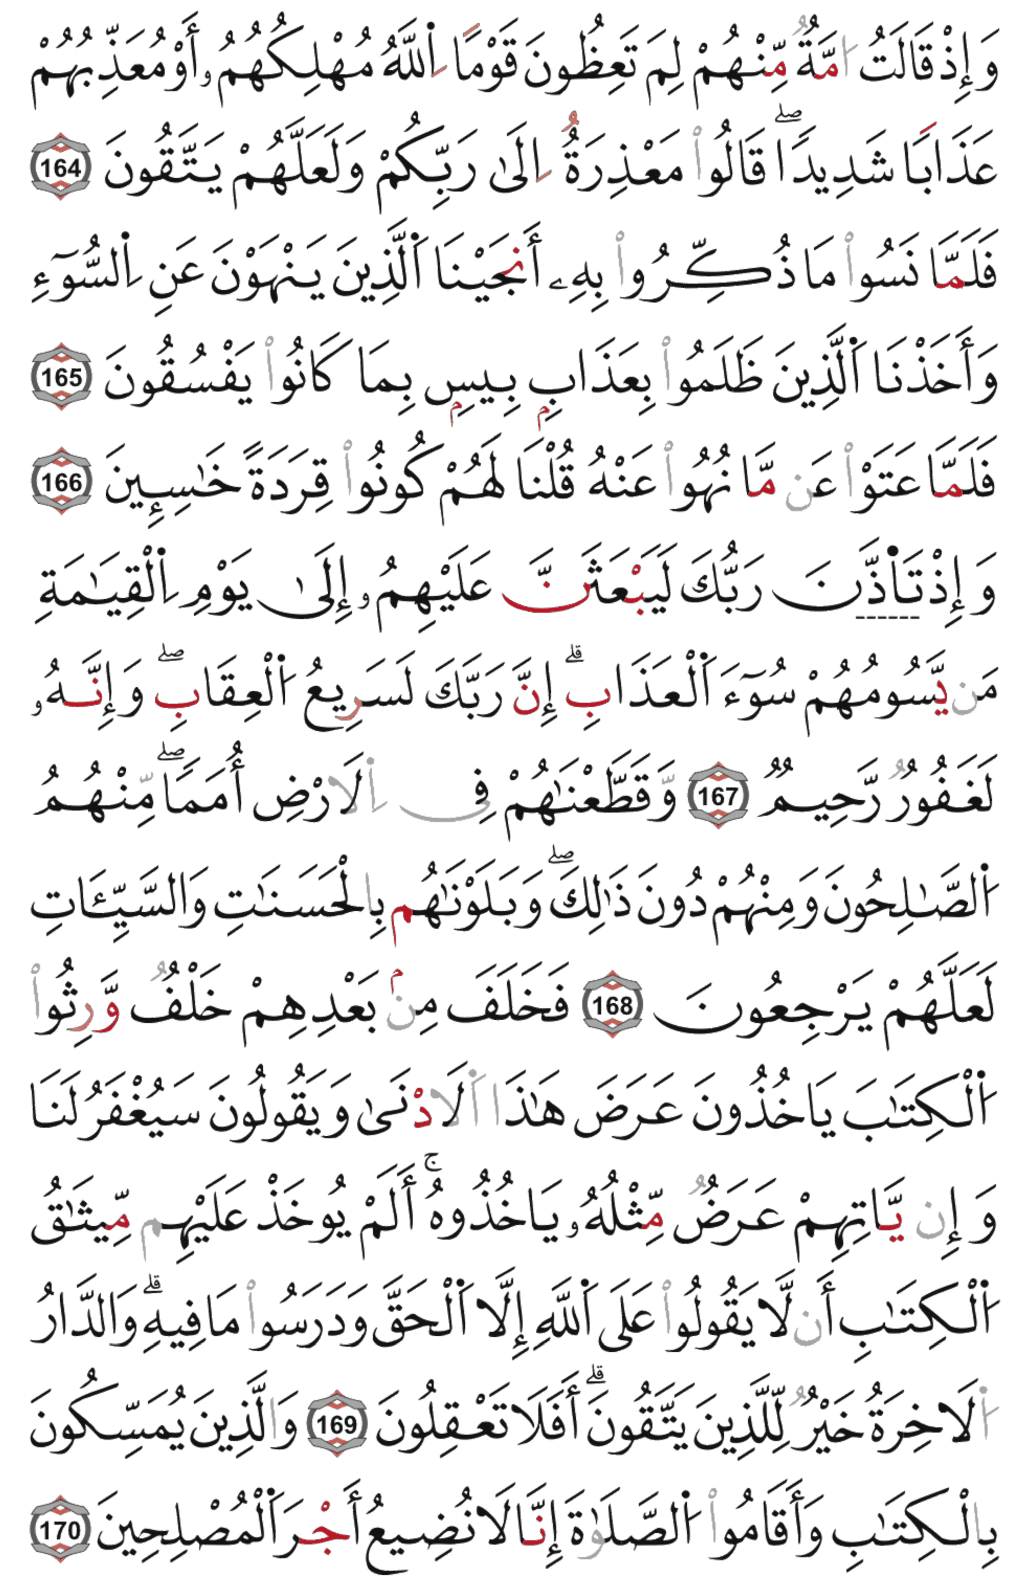 وَإِذْ قَالَتُ ا۟مَّةٌ مِّنْهُمْ لِمَ تَعِظُونَ قَوْمًا اِ۬للَّهُ مُهْلِكُهُمُۥ أَوْ مُعَذِّبُهُمْ
عَذَابًا شَدِيدًاۖ قَالُوا۟ مَعْذِرَةٌ اِلَىٰ رَبِّكُمْ وَلَعَلَّهُمْ يَتَّقُونَ 164
فَلَمَّا نَسُوا۟ مَا ذُكِّرُوا۟ بِهِۦ أَنجَيْنَا اَ۬لَّذِينَ يَنْهَوْنَ عَنِ اِ۬لسُّوٓءِ
وَأَخَذْنَا اَ۬لَّذِينَ ظَلَمُوا۟ بِعَذَابِۭ بِيسِۭ بِمَا كَانُوا۟ يَفْسُقُونَ 165
فَلَمَّا عَتَوْا۟ عَن مَّا نُهُوا۟ عَنْهُ قُلْنَا لَهُمْ كُونُوا۟ قِرَدَةً خَٰسِـِٕينَ 166
وَإِذْ تَأَذَّنَ رَبُّكَ لَيَبْعَثَنَّ عَلَيْهِمُۥ إِلَىٰ يَوْمِ اِ۬لْقِيَٰمَةِ
مَن يَّسُومُهُمْ سُوٓءَ اَ۬لْعَذَابِۗ إِنَّ رَبَّكَ لَسَرِيعُ اُ۬لْعِقَابِۖ وَإِنَّهُۥ
لَغَفُورٌ رَّحِيمٌ 167 وَّقَطَّعْنَٰهُمْ فِي اِ۬لَارْضِ أُمَمًاۖ مِّنْهُمُ
اُ۬لصَّٰلِحُونَ وَمِنْهُمْ دُونَ ذَٰلِكَۖ وَبَلَوْنَٰهُم بِالْحَسَنَٰتِ وَالسَّيِّـَٔاتِ
لَعَلَّهُمْ يَرْجِعُونَ 168 فَخَلَفَ مِنۢ بَعْدِهِمْ خَلْفٌ وَّرِثُوا۟
اُ۬لْكِتَٰبَ يَاخُذُونَ عَرَضَ هَٰذَا اَ۬لَادْنَىٰ وَيَقُولُونَ سَيُغْفَرُ لَنَا
وَإِن يَّاتِهِمْ عَرَضٌ مِّثْلُهُۥ يَاخُذُوهُۚ أَلَمْ يُوخَذْ عَلَيْهِم مِّيثَٰقُ
اُ۬لْكِتَٰبِ أَن لَّا يَقُولُوا۟ عَلَى اَ۬للَّهِ إِلَّا اَ۬لْحَقَّ وَدَرَسُوا۟ مَا فِيهِۗ وَالدَّارُ
اُ۬لَاخِرَةُ خَيْرٌ لِّلَّذِينَ يَتَّقُونَۗ أَفَلَا تَعْقِلُونَ 169 وَالَّذِينَ يُمَسِّكُونَ
بِالْكِتَٰبِ وَأَقَامُوا۟ اُ۬لصَّلَوٰةَ إِنَّا لَا نُضِيعُ أَجْرَ اَ۬لْمُصْلِحِينَ 170